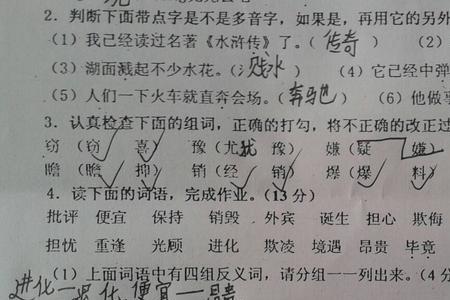 2. 判断下面带点字是不是多音字，如果是，再用它的另外
(1) 我已经读过名著《水浒传》了。(传奇) (2)
(3) 湖面溅起不少水花。(溅水) (4) 它已经中弹
(5) 人们一下火车就直奔会场。(奔驰) (6) 他做事
3. 认真检查下面的组词，正确的打勾，将不正确的改正过
窃 (窃 喜) 豫 (尤犹 豫) 嫌 (疑 嫌)
瞻 (瞻 抑) 销 (经 销) 爆 (爆 料)
4. 读下面的词语，完成作业。(13 分)
批评 便宜 保持 销毁 外宾 诞生 担心 欺侮
担忧 重逢 光顾 进化 欺凌 境遇 昂贵 毕竟
(1) 上面词语中有四组反义词，请分组一一列出来。(4 分
进化—退化 便宜—昂贵